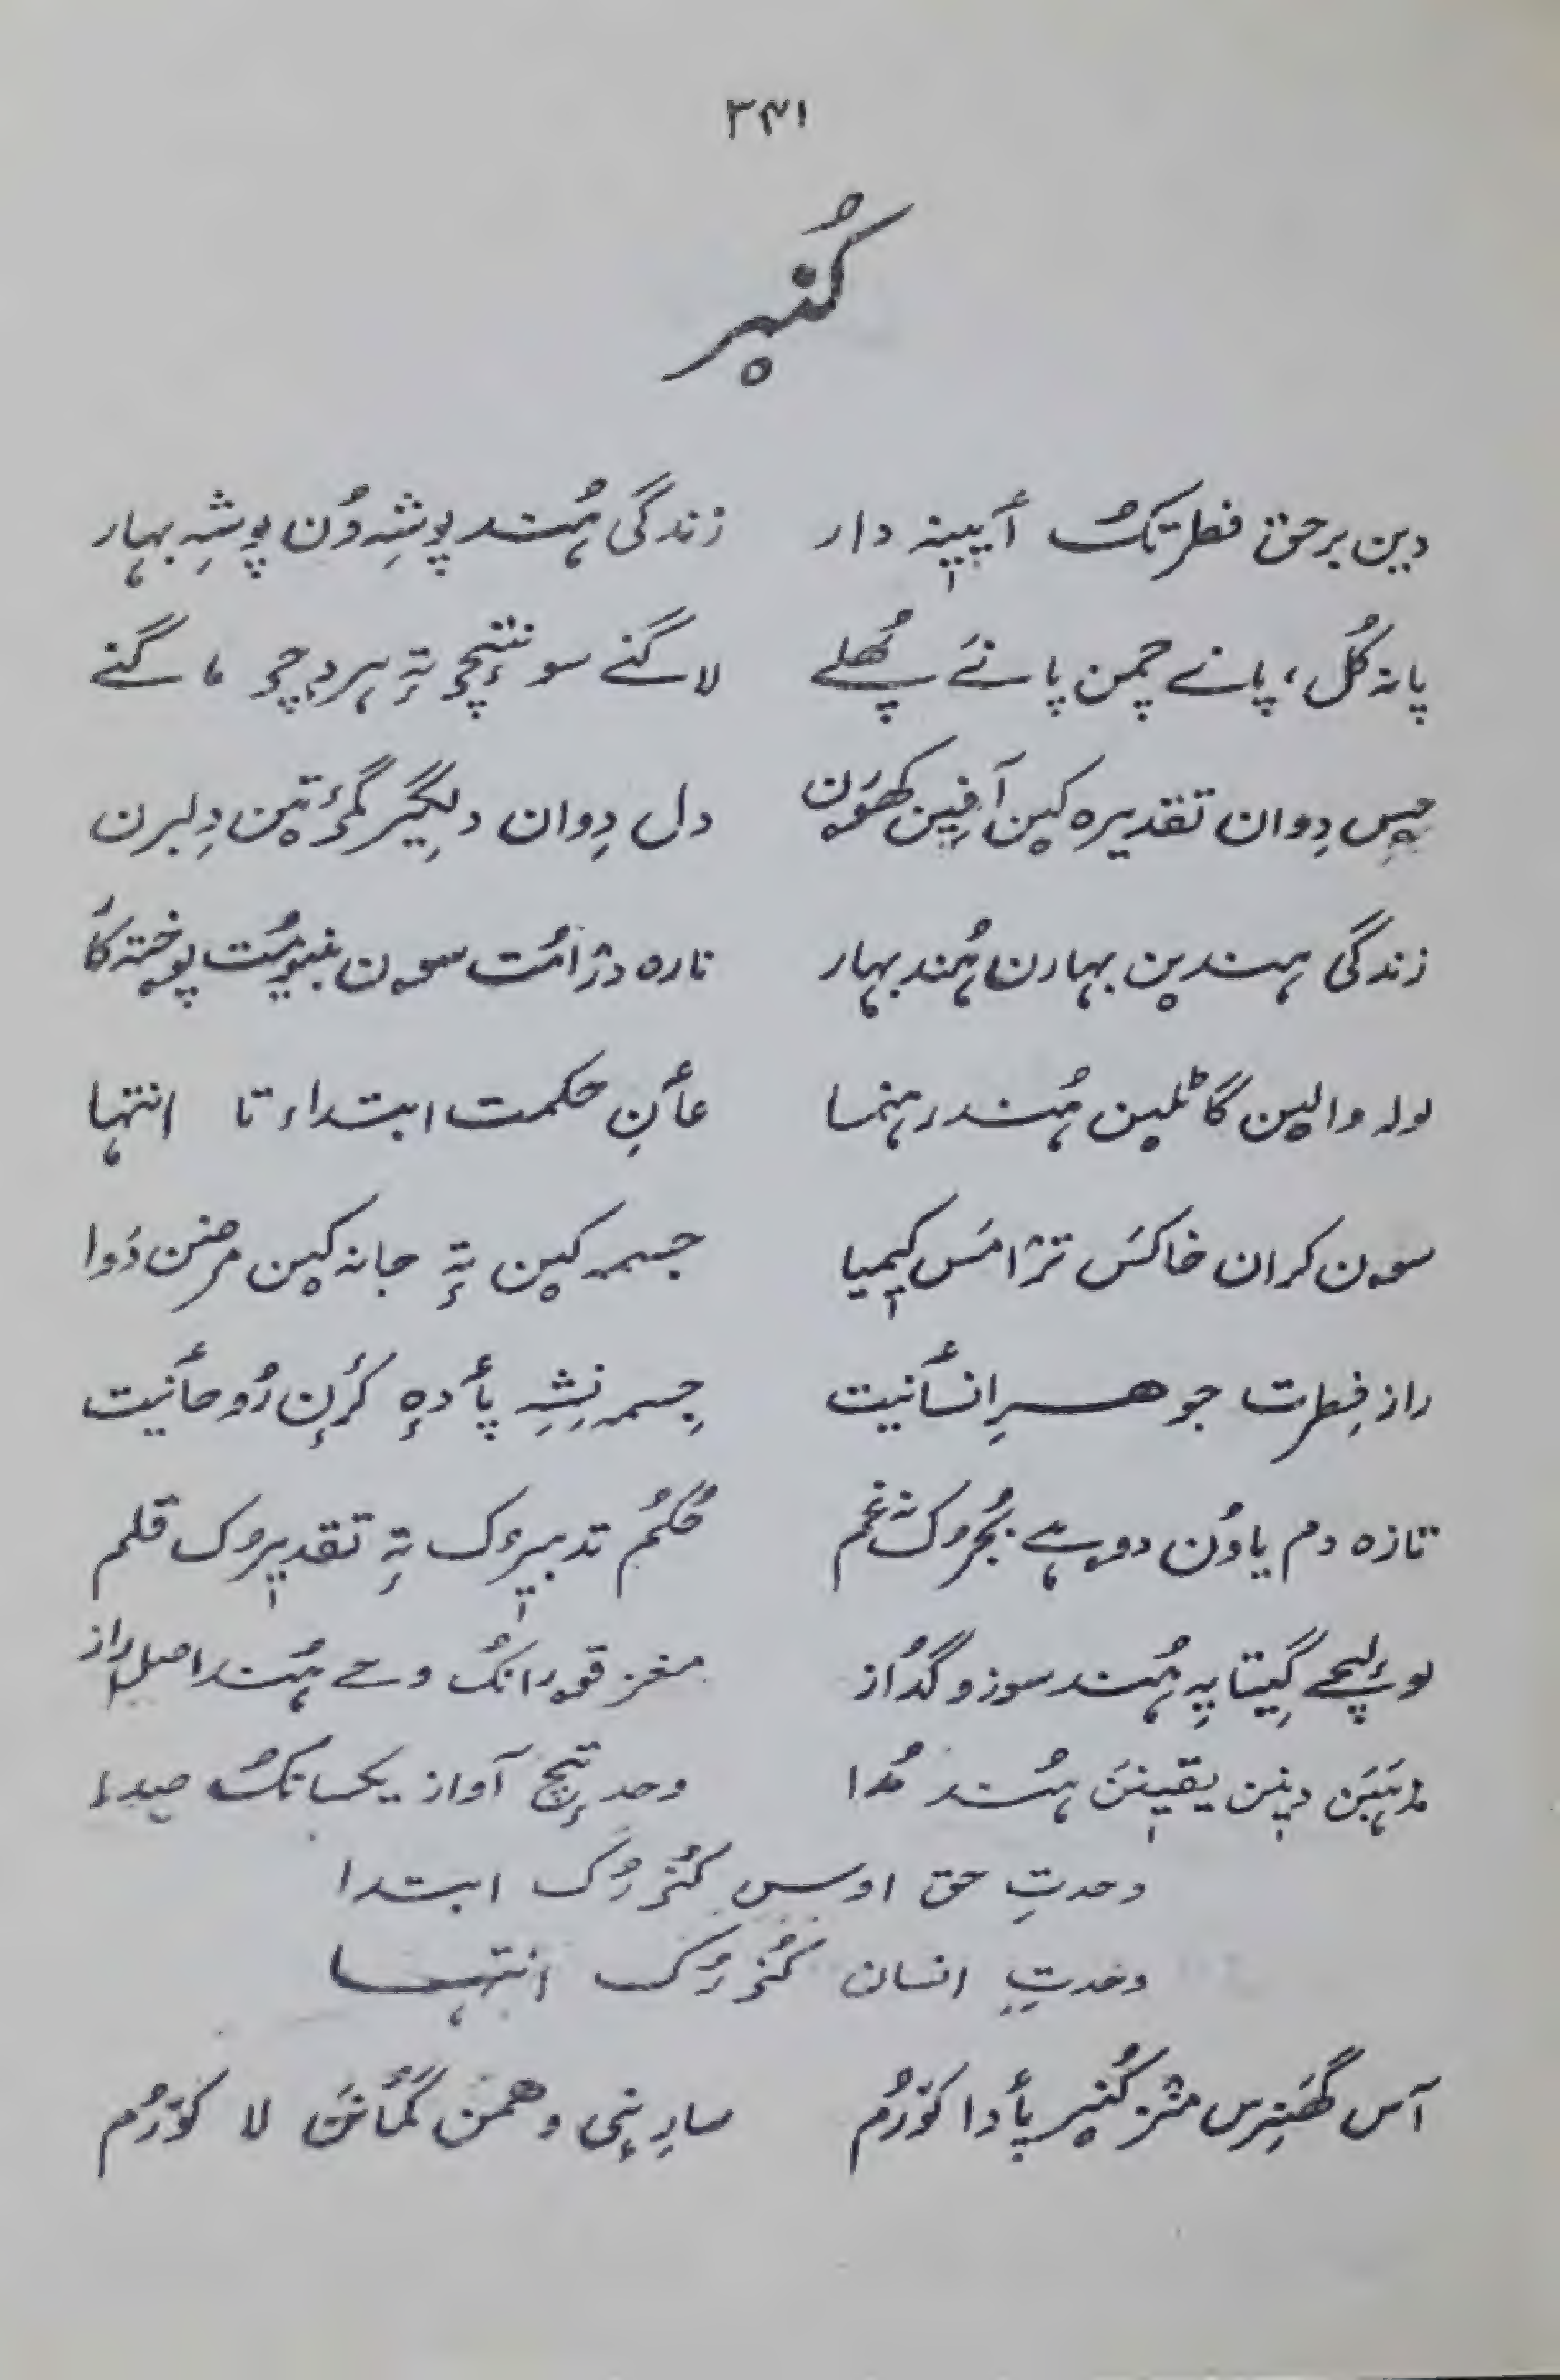 ۳۴۱
کُنیر
دین برحق فطرتکُ أیینہ دار زندگی ہُند پوشِہ وُن پوشِہ بہار
پانہ گُل، پانے چمن پانےَ پُھلے لاگنے سونتٕچ تہٕ ہردچ ماگنے
دِوان تقدیرہ کین دل دِوان دِلگیر گمٕژ تین دِلبرن
زندگی ہندین بہارن ہُند بہار نارہ دژامُت سون بنیومُت پوختہ کا
لولہ والین گاٹلین ہُند رہنما عأنِ حکمت ابتداء تا انتہا
سون کران خاکَس ترٛامَس کیمیا جسمہ کین تہٕ جانہ کین مرضن دَوا
راز فِطرت جوھرِ انسأنیت جِسمہ نِشہِ پأدہٕ کرٔنِ رُوحأنیت
تازہ دم یاوُن دوہے بُجرُک نہٕ غم حُکُم تدبیرُک تہٕ تقدیرُک قلم
گیتایہِ ہُند سوز و گداز مغز قورانکُ وحے ہُند اصل راز
مذہبَن دینن یقینَن ہُند مُدا وحدتٕچ آواز یکسانکُ صدا
وحدتِ حق اوس کُنرُک ابتدا
وحدتِ انسان کُنرُک انتہا
آس گھَنیرس منٛز کُنیر پأدا کوٚرُم سارنی وھمن گمأنَن لا کوٚرُم